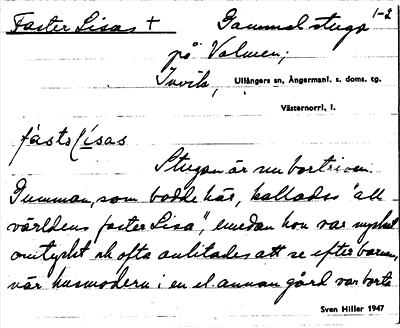 Faster Lisas + Gammal stuga 1-2
på Valmen,
Invik, Ullångers sn, Ångermanl. s. doms. tg.
Västernorrl. l.
fàstɘlísas
Stugan är nu bortriven.
Gumman, som bodde här, kallades "all
världens faster Lisa", emedan hon var mycket
omtyckt och ofta anlitades att se efter barnen,
när husmodern i en el. annan gård var borta
Sven Hiller 1947